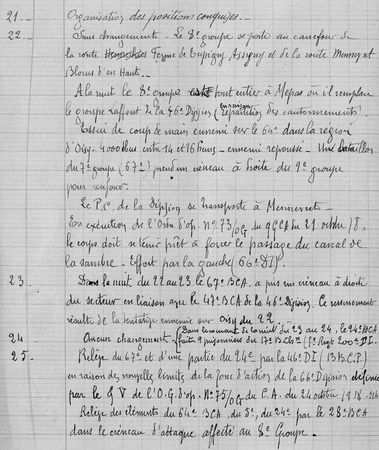 21._ Organisation des positions conquises._
22._ Sans changement._ Le 8e groupe se porte au carrefour de
la route Ferme de Tupigny, Assigny et de la route Mennes et
Blocus d'en Haut._
A la nuit le 8e groupe tout entier à Mepas où il remplace
le groupe Laffont de la 46e Division (en raison répartition des cantonnements)
Essai de coup de main ennemi sur le 64e dans la région
d'Oisy. 4000 obus entre 14 et 16 heures - ennemi repoussé - Un bataillon
du 7e groupe (67e) prend un créneau à droite du 9e groupe
pour renfort.
Le P.C. de la Division se transporte à Mennevret._
En exécution de l'Ordre d'op. N° 73/OG du QGCA du 21 octobre 18,
le corps doit se tenir prêt à forcer le passage du canal de
la Sambre - Effort par la gauche (66e DI)
23_ Dans la nuit du 22 au 23 le 67e BCA a pris un créneau à droite
du secteur en liaison avec le 47e BCA de la 46e Division. Ce remaniement
résulte de la tentative ennemie sur Oisy du 22._
24_ Aucun changement._ (Dans le courant de la nuit du 23 au 24, le 24e BCA
faite 2 prisonniers du 17e B (5e Rgt 200e DI.
25_ Relève du 67e et d'une partie du 24e par la 46e DI (13 B.C.P.)
en raison des nouvelles limites de la zone d'action de la 66e Division définie
par le § V de l'O.G. d'op. N° 75/OG du C.A. du 24 octobre 1918
Relève des éléments du 64e BCA, du 5e, du 24e par le 28e BCA
dans le créneau d'attaque affecté au 8e Groupe._